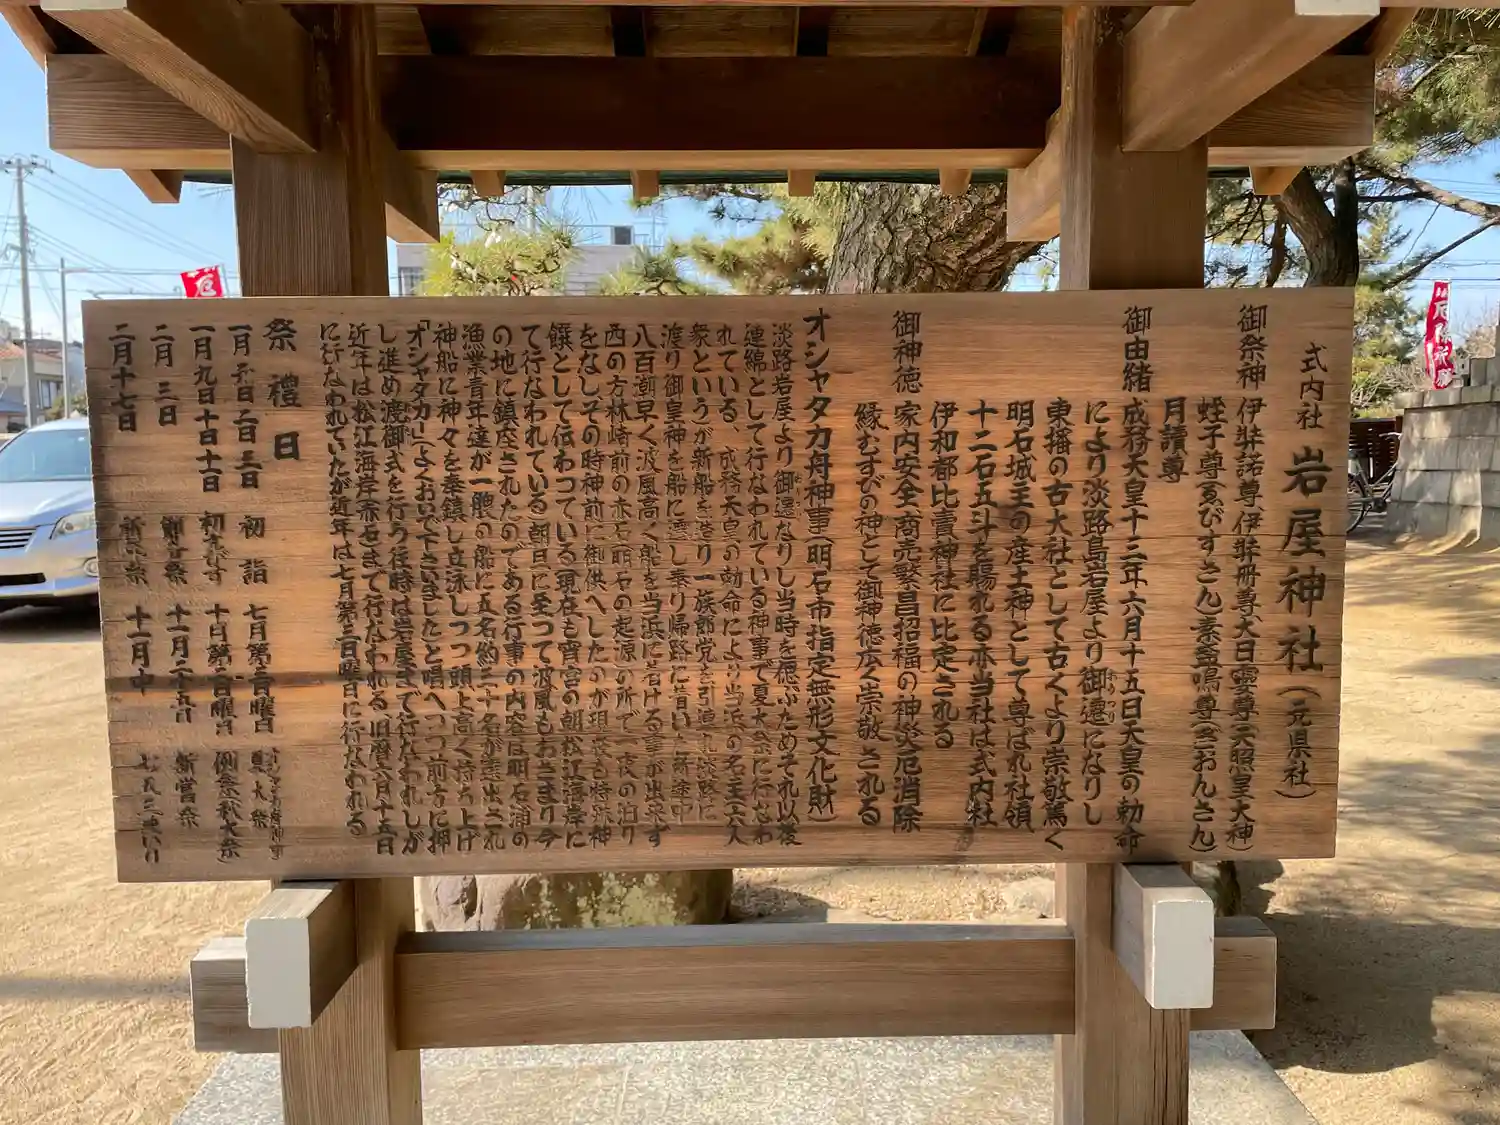 式内社 岩屋神社(元県社)
御祭神 伊弉諾尊、伊弉冊尊、大日孁尊(天照皇大神)
蛭子尊(ゑびすさん)素盞嗚尊(ぎおんさん)
月讀尊
御由緒 成務天皇十三年六月十五日天皇の勅命
により淡路島岩屋より御遷になりし
東播の古大社として古くより崇敬篤く
明石城主の産土神として尊ばれ社領
十二石五斗を賜れる亦当社は式内社
伊和都比賣神社に比定される
御神徳 家内安全、商売繁昌招福の神災厄消除
縁むすびの神として御神徳広く崇敬される
オシャタカ舟神事(明石市指定無形文化財)
淡路岩屋より御遷なりし当時を偲ぶためそれ以後
連綿として行なわれている神事で夏大祭に行なわ
れている、成務天皇の勅命により当浜の名主(六人
衆という)が新船を造り一族郎党を引連れ淡路に
渡り御皇神を船に遷し乗り帰路に着いた
八百潮早く波風高く船を当浜に着ける事が出来ず
西の方林崎前の赤石(明石の起源)の所で一夜の泊り
をなし、その時神前に御供へしたのが現在も特殊神
饌として伝わっている現在も宵宮の朝松江海岸に
て行なわれている朝日に至って波風もおさまり今
の地に鎮座されたのである行事の内容は明石浦の
漁業青年達が一艘の船に五名約三十名が選出され
神船に神々を奉鎮し立泳しつつ頭上高く持ち上げ
「オシャタカー」(よくおいで下さいました)と唱へつつ前方に押
し進め渡御式を行う往時は岩屋まで行なわれしが
近年は松江海岸赤石まで行なわれる旧暦六月十五日
に行なわれていたが近年は七月第三日曜日に行なわれる
祭禮日
一月一日二日三日 初詣
一月九日十日十一日 初ゑびす
二月三日 節分祭
二月十七日 祈年祭
七月第三日曜日 夏大祭
十月第二日曜日 例祭(秋大祭)
十一月二十五日 新嘗祭
十一月中 七五三まいり
厄